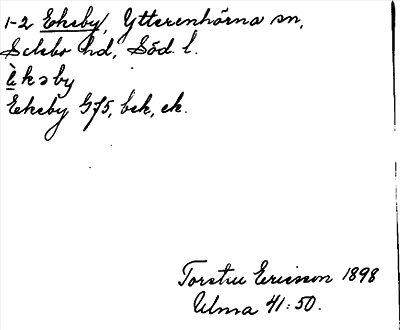 1-2 Eksby, Ytterenhörna sn,
Selebo hd, Söd. l.
èksby
Eksby G75, bek, ek.
Torsten Ericsson 1898
Ulma 41:50.